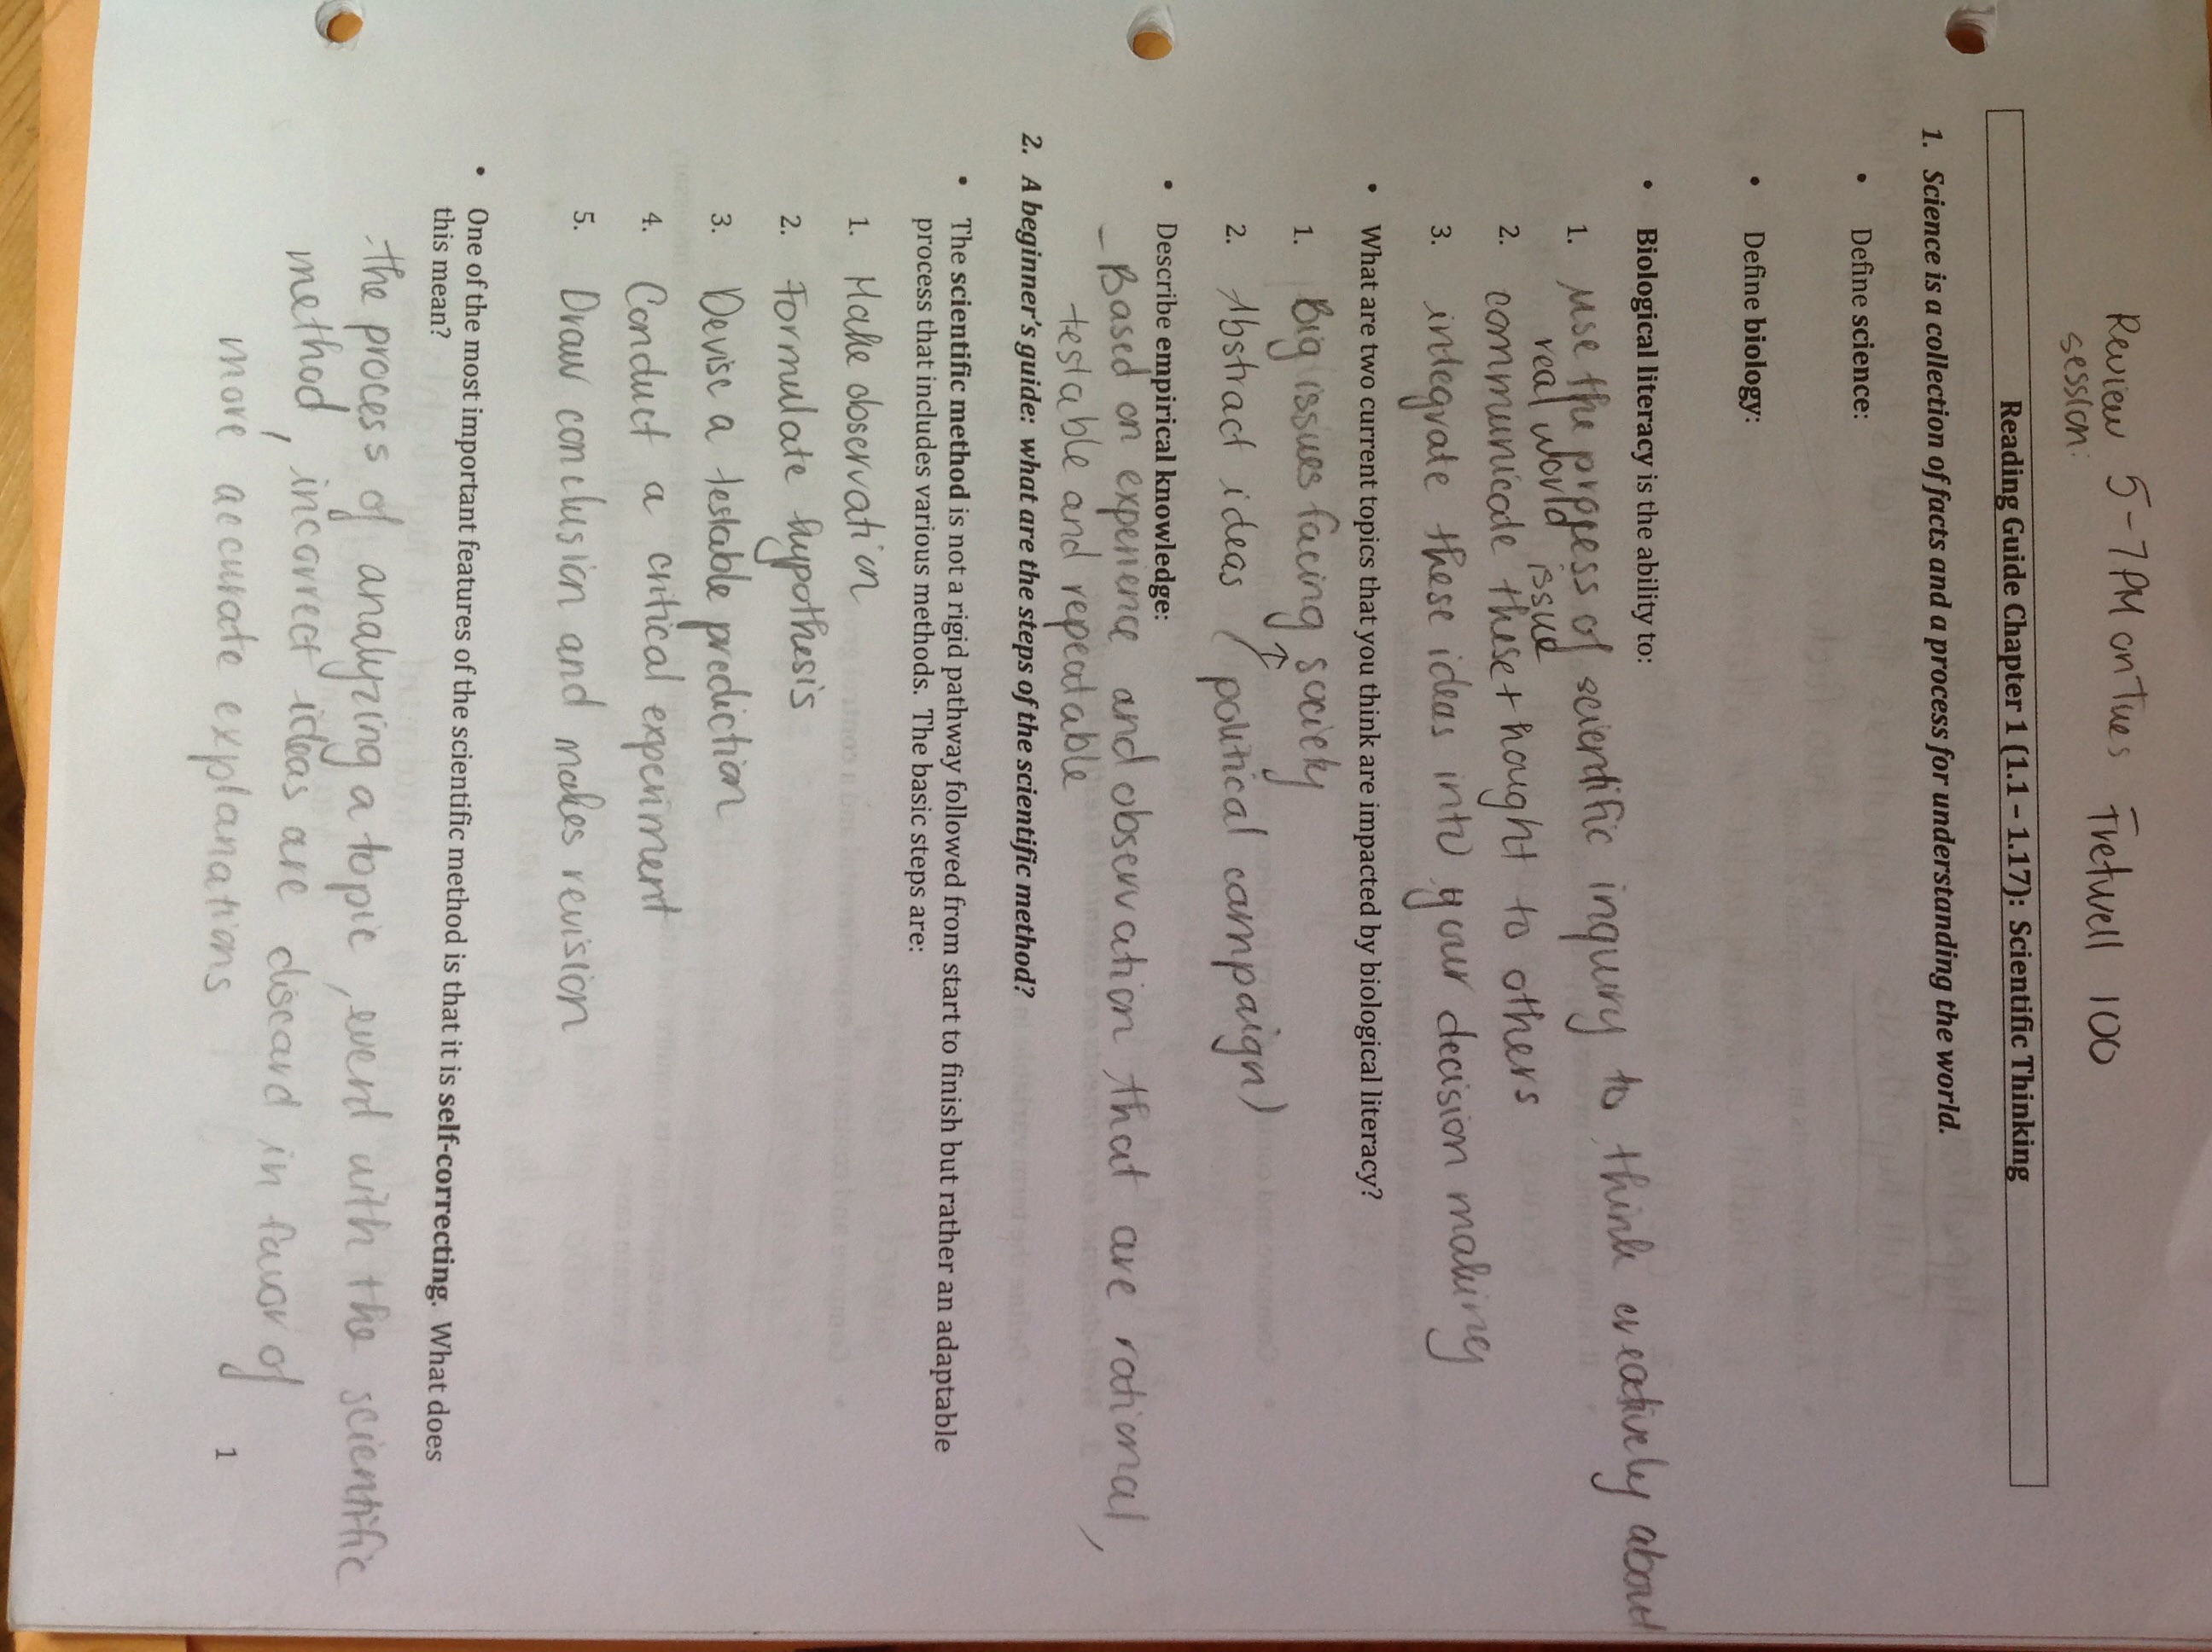 Review 5-7PM on Tues Fretwell 100
session:
Reading Guide Chapter 1 (1.1 – 1.17): Scientific Thinking
1. Science is a collection of facts and a process for understanding the world.
• Define science:
• Define biology:
• Biological literacy is the ability to:
1. use the process of scientific inquiry to think creatively about
real world issue
2. communicate these thought to others
3. integrate these ideas into your decision making
• What are two current topics that you think are impacted by biological literacy?
1. Big issues facing society
2. Abstract ideas (political campaign)
• Describe empirical knowledge:
- Based on experience and observation that are rational,
testable and repeatable
2. A beginner's guide: what are the steps of the scientific method?
• The scientific method is not a rigid pathway followed from start to finish but rather an adaptable
process that includes various methods. The basic steps are:
1. Make observation
2. Formulate hypothesis
3. Devise a testable prediction
4. Conduct a critical experiment
5. Draw conclusion and makes revision
• One of the most important features of the scientific method is that it is self-correcting. What does
this mean?
the process of analyzing a topic, event with the scientific
method, incorrect ideas are discard in favor of
more accurate explanations
1